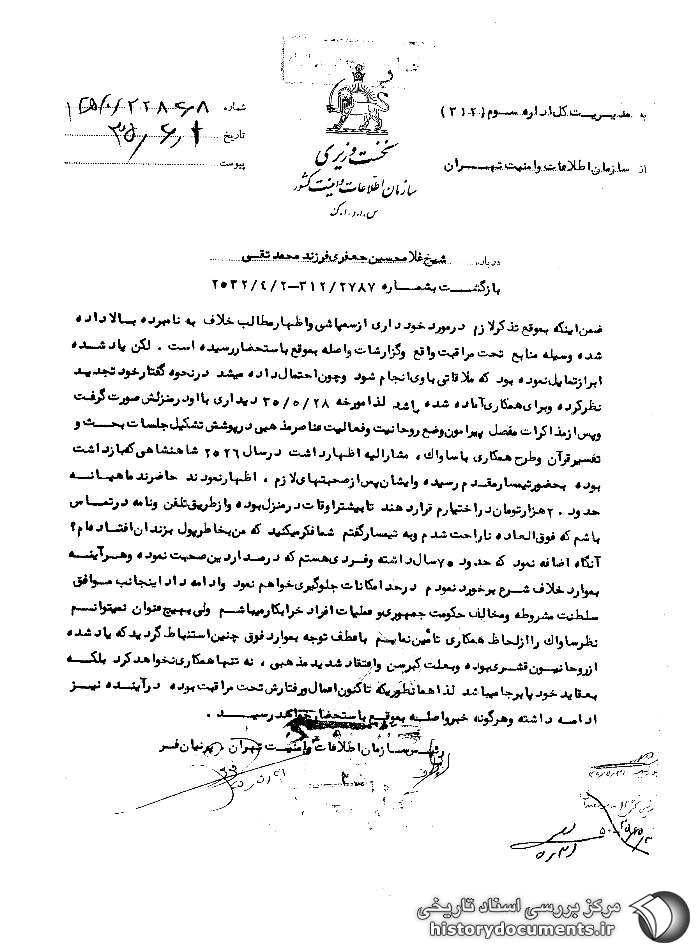 به مدیریت کل اداره سوم (۳۱۲)
از سازمان اطلاعات و امنیت تهران
شماره
تاریخ
پیوست
نخست وزیری
سازمان اطلاعات و امنیت کشور
س.ا.و.ا.ک
درباره شیخ غلامحسین جعفری فرزند محمد تقی
بازگشت بشماره ۳۱۲/۲۷۸۷-۲۵۳۲/۴/۲
ضمن اینکه بموقع تذکر لازم در مورد خودداری از سمپاشی و اظهار مطالب خلاف به نامبرده بالا داده
شده وسیله منابع تحت مراقبت واقع و گزارشات واصله بموقع باستحضار رسیده است . لکن یاد شده
ابراز تمایل نموده بود که ملاقاتی با وی انجام شود و چون احتمال داده میشد در نحوه گفتار خود تجدید
نظر کرده و برای همکاری آماده شده باشد لذا مورخه ۳۵/۵/۲۸ دیداری با او در منزلش صورت گرفت
و پس از مذاکرات مفصل پیرامون وضع روحانیت و فعالیت عناصر مذهبی در پوشش تشکیل جلسات بحث و
تفسیر قرآن و طرح همکاری با ساواک ، مشارالیه اظهار داشت در سال ۲۵۲۶ شاهنشاهی که بازداشت
بوده بحضور تیمسار مقدم رسیده و ایشان پس از صحبتهای لازم ، اظهار نمودند حاضرند ماهیانه
حدود ۲۰ هزار تومان در اختیارم قرار دهند تا بیشتر اوقات در منزل بوده و از طریق تلفن و نامه در تماس
باشم که فوق العاده ناراحت شدم و به تیمسار گفتم شما فکر میکنید که من بخاطر پول بزندان افتاده ام؟
آنگاه اضافه نمود که حدود ۷۵ سال داشته و فردی هستم که در مدار دین صحبت نموده و هر آینه
بموارد خلاف شرع برخورد نمودم در حد امکانات جلوگیری خواهم نمود وادامه داد اینجانب موافق
سلطنت مشروطه و مخالف حکومت جمهوری و عملیات افراد خرابکار میباشم ولی بهیچ عنوان نمیتوانم
نظر ساواک را از لحاظ همکاری تأمین نمایم با عطف توجه بموارد فوق چنین استنباط گردید که یاد شده
از روحانیون قشری بوده و بعلت کبر سن و اعتقاد شدید مذهبی ، نه تنها همکاری نخواهد کرد بلکه
بعقاید خود پابرجا میباشد لذا همانطوریکه تاکنون اعمال و رفتارش تحت مراقبت بوده در آینده نیز
ادامه داشته و هرگونه خبر واصله بموقع باستحضار خواهد رسید .
رئیس سازمان اطلاعات و امنیت تهران . پرنیان فر
مرکز بررسی اسناد تاریخی
historydocuments.ir